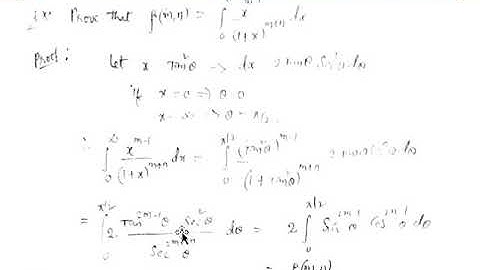 Ex: Prove that β(m,n) = ∫₀ x / (1+x)^{m+n} dx
Proof: Let x tan²θ → dx 2 tanθ sec²θ dθ
if x = 0 ⇒ θ 0
x θ = π/2
∴ ∫₀^∞ x^{m-1} / (1+x)^{m+n} dx = ∫₀^{π/2} (tan²θ)^{m-1} / (1+tan²θ)^{m+n} 2 tanθ sec²θ dθ
= ∫₀^{π/2} 2 tan^{2m-1}θ sec²θ / sec θ dθ = 2 ∫₀^{π/2} sin^{2m-1}θ cos^{2n-1}θ dθ
= β(m,n)